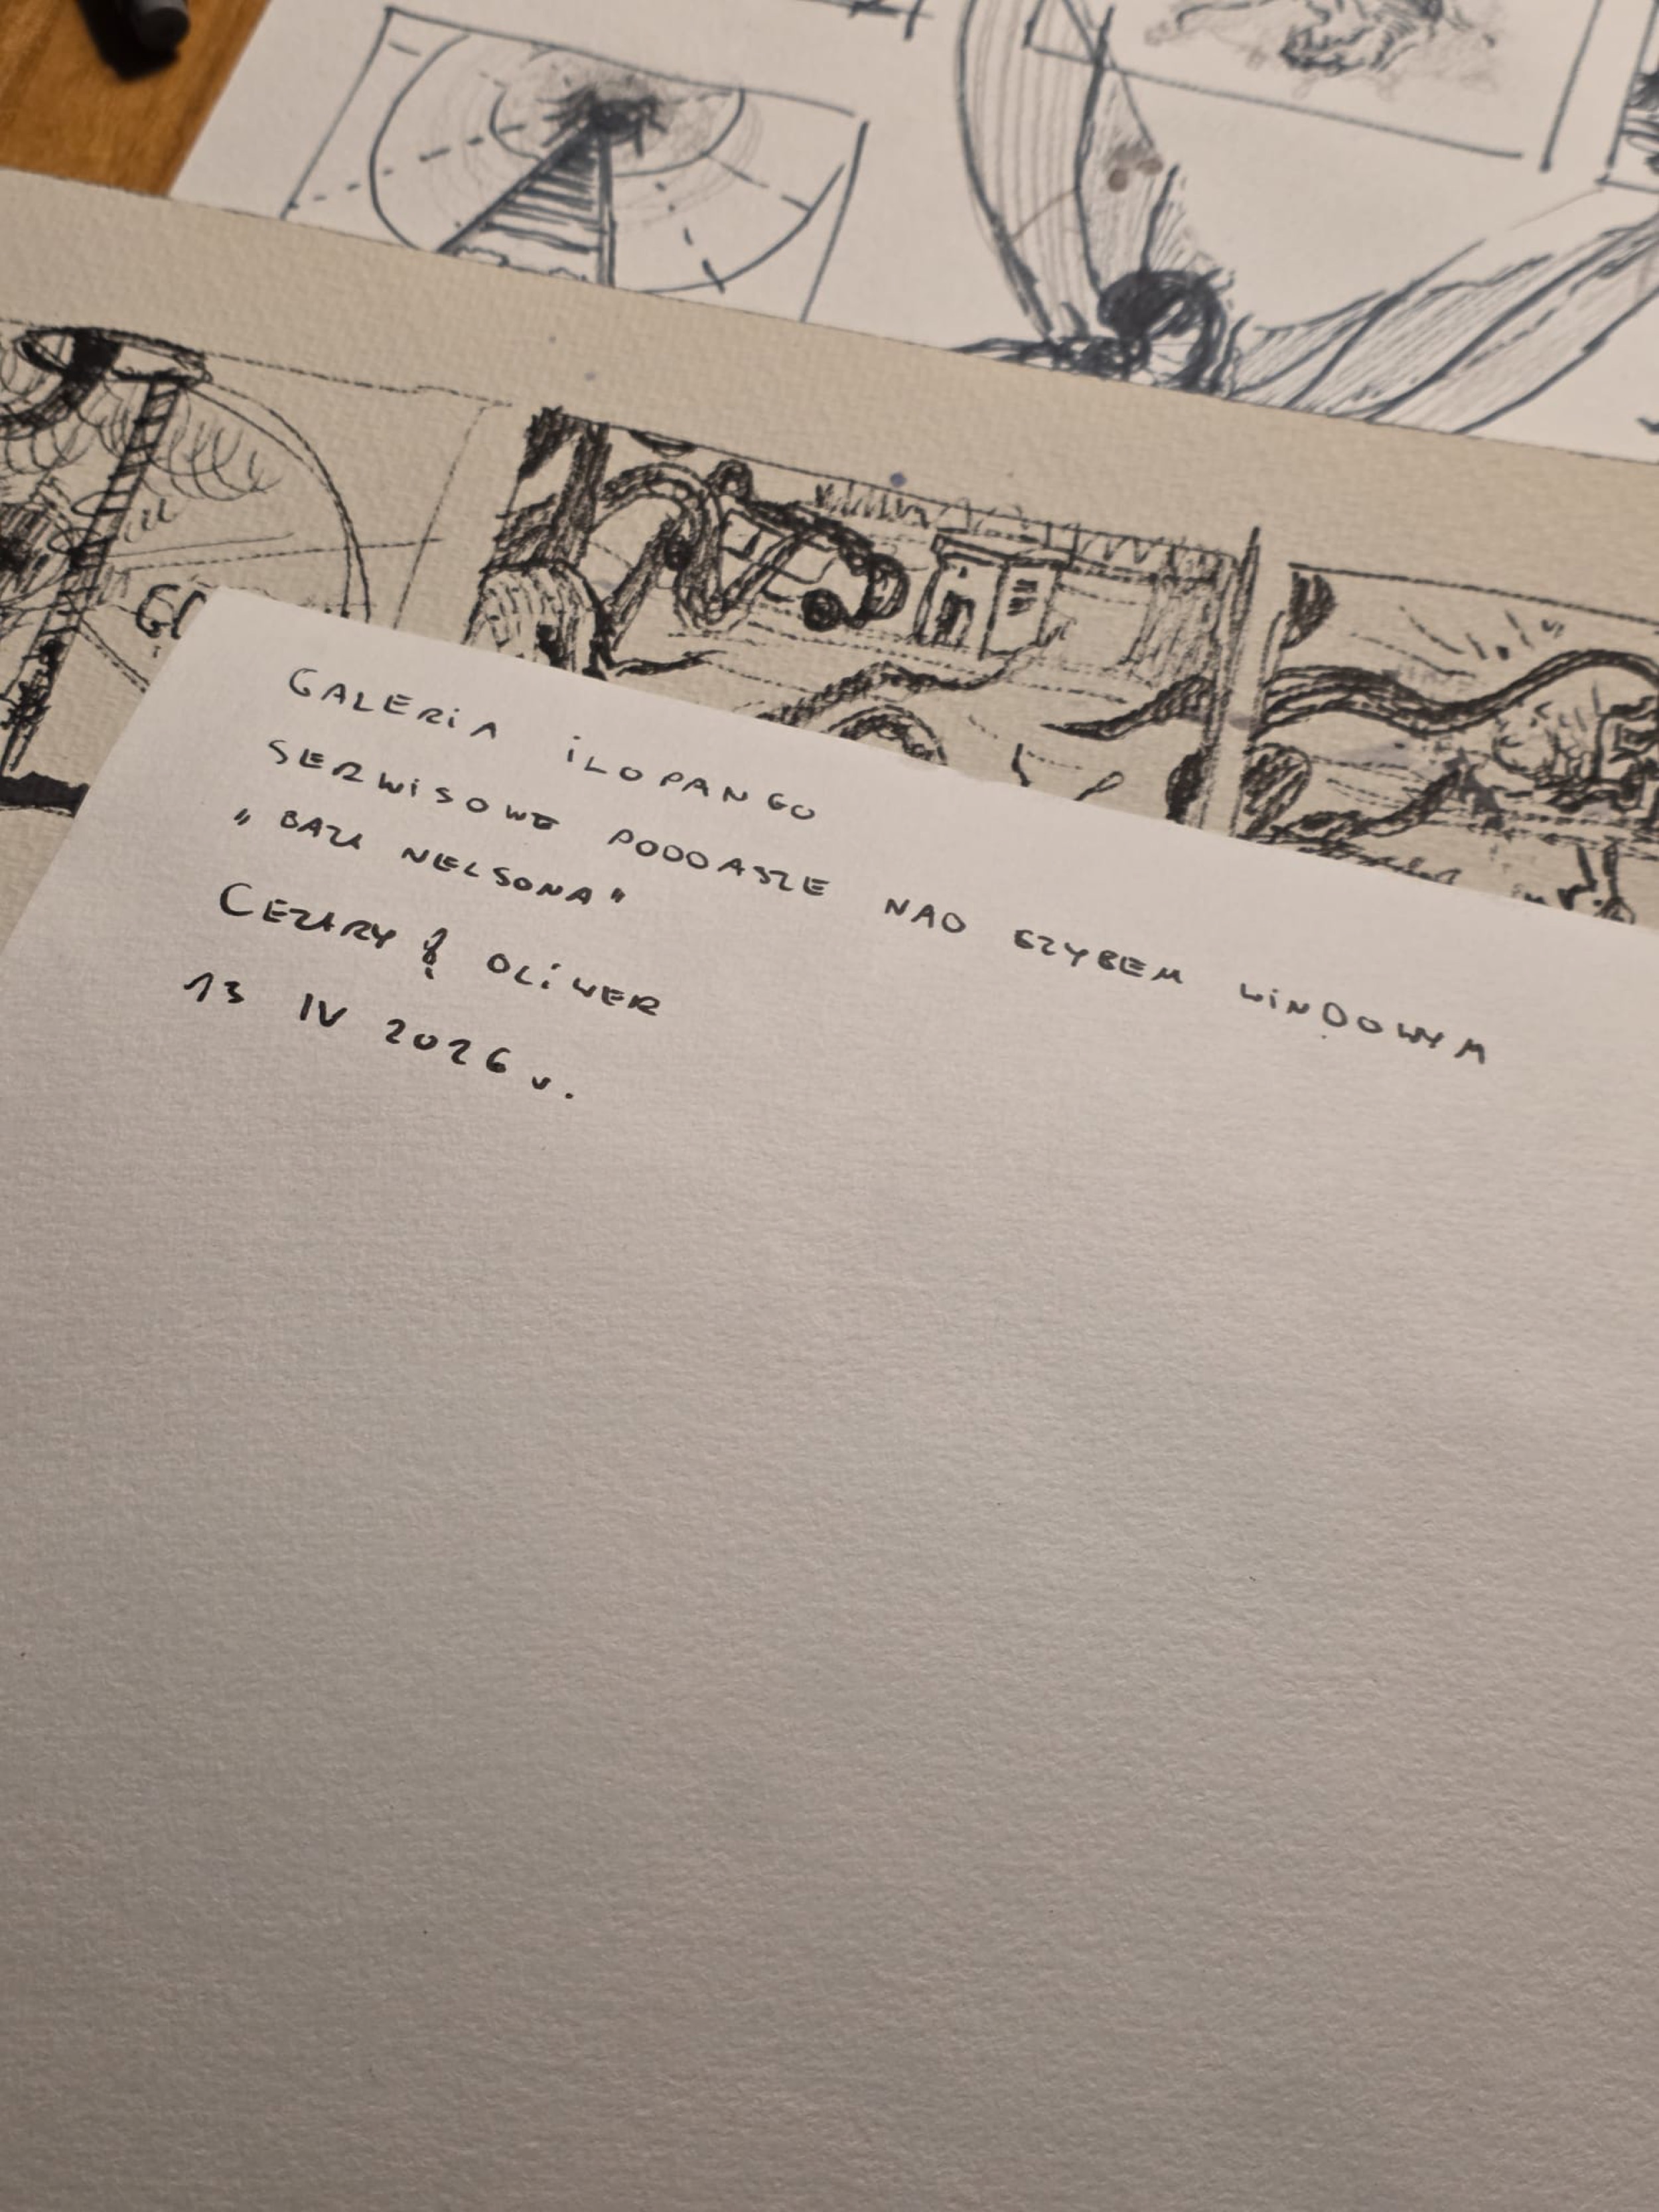 GO
GALERiA iLOPANGO
SERWiSOWE PODDASZE NAD SZYBEM WiNDOWYM
„BAZA NELSONA"
CEZARY & OLiWER
13 IV 2026 r.